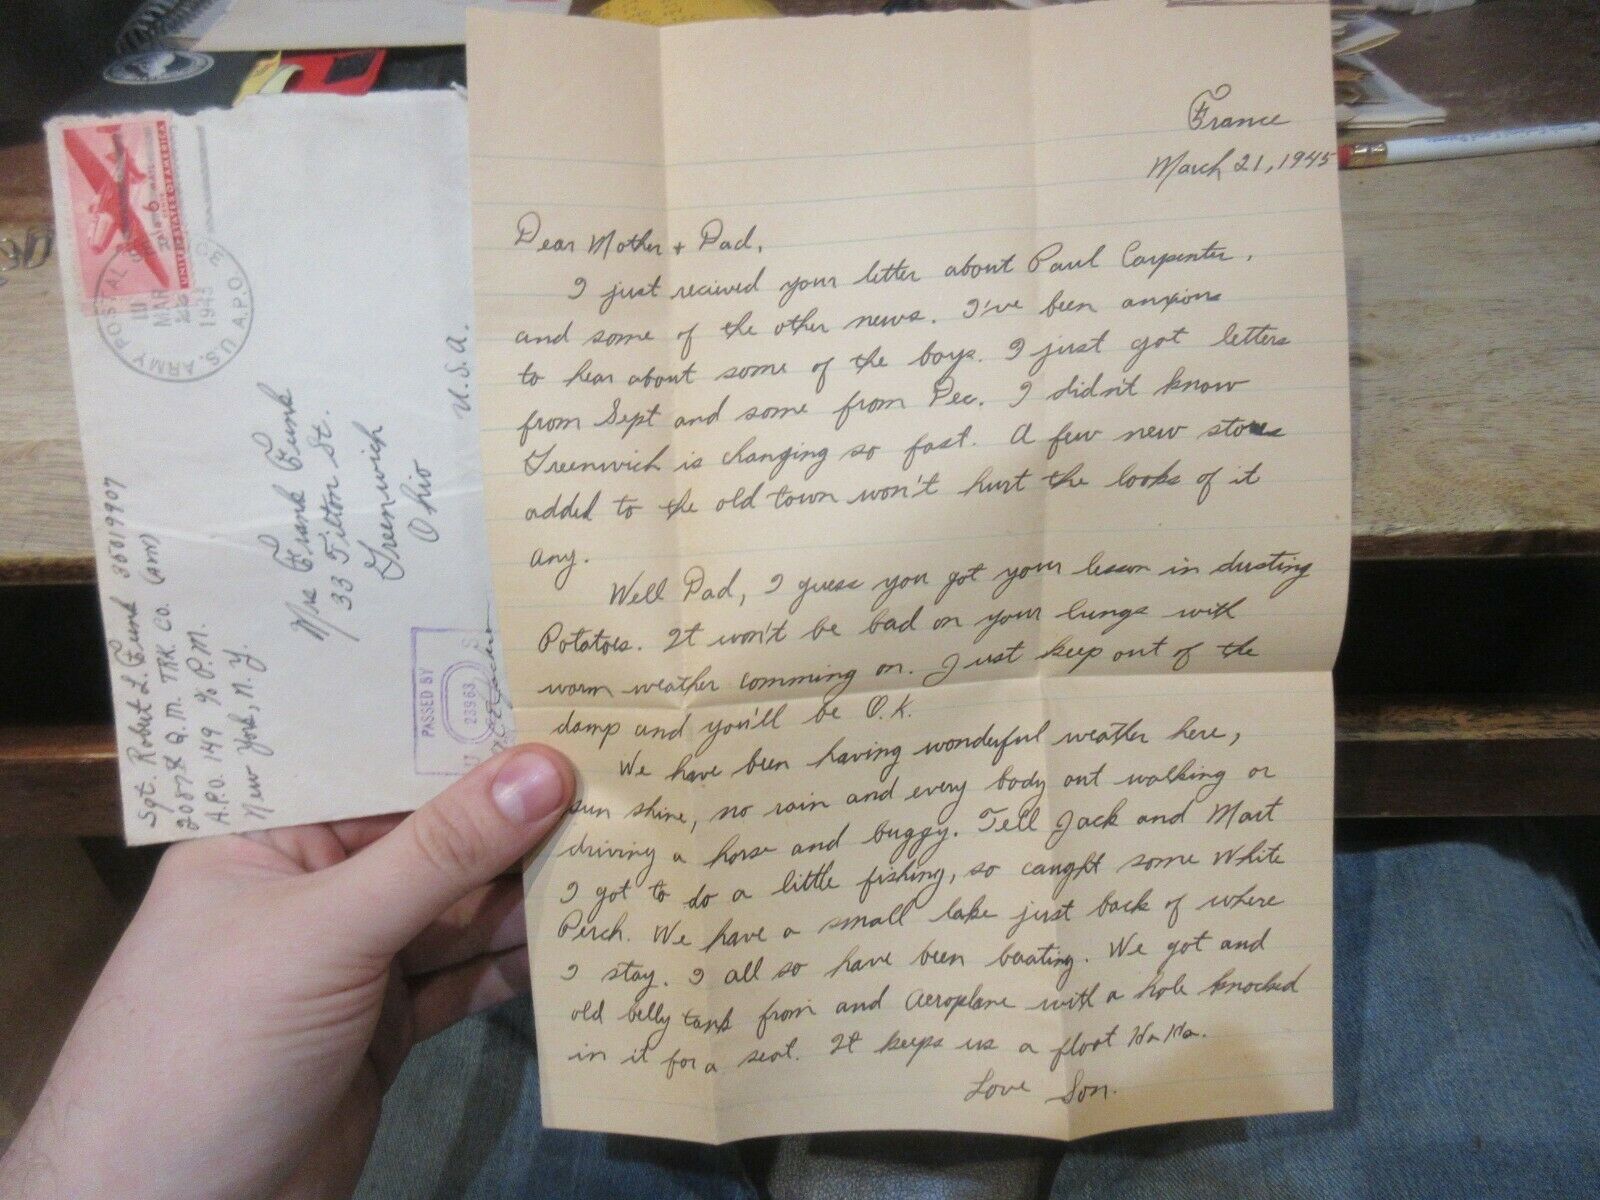 France
March 21, 1945
Dear Mother + Dad,
I just recieved your letter about Paul Carpenter,
and some of the other news. I've been anxious
to hear about some of the boys. I just got letters
from Sept and some from Dec. I didn't know
Greenwich is changing so fast. A few new stores
added to the old town won't hurt the looks of it
any.
Well Dad, I guess you got your lesson in dusting
Potatoes. It won't be bad on your lungs with
warm weather comming on. Just keep out of the
damp and you'll be O.K.
We have been having wonderful weather here,
sun shine, no rain and every body out walking or
driving a horse and buggy. Tell Jack and Mart
I got to do a little fishing, so caught some White
Perch. We have a small lake just back of where
I stay. I all so have been boating. We got and
old belly tank from and Aeroplane with a hole knocked
in it for a seat. It keeps us a float Ha Ha.
Love Son.
Sgt. Robert L. Funk 35019907
Q.M. TRK. CO. (AM)
A.P.O. 149 % P.M.
New York, N.Y.
Mrs Frank Funk
33 Tilton St.
Greenwich
Ohio
U.S.A.
UNITED STATES OF AMERICA
U.S. ARMY POSTAL
A.P.O.
MAR
1945
PASSED BY
U S